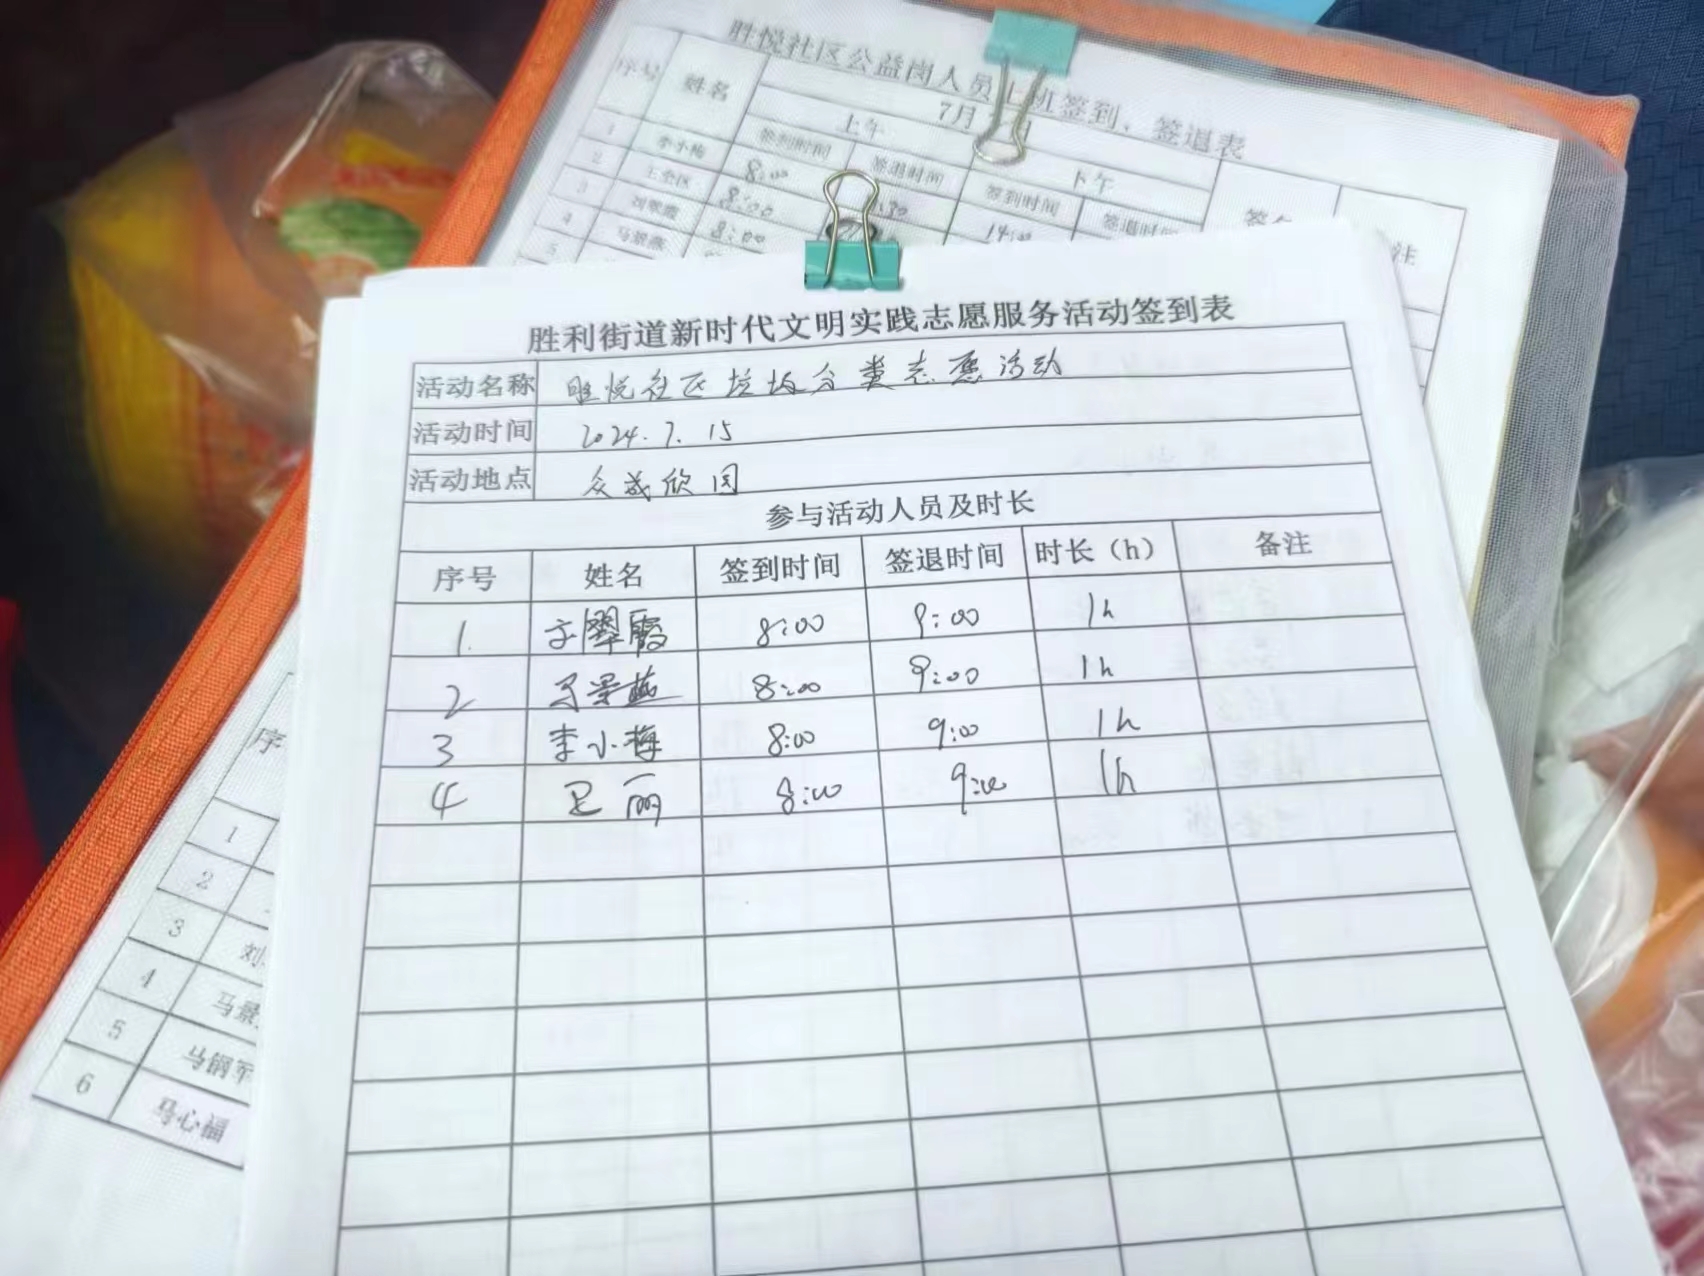 胜悦社区公益岗人员上班签到、签退表
7月 日
序号 姓名 上午 下午
签到时间 签退时间 签到时间 签退时间
1 李小梅 8:00
2 8:00
3 8:00
4 马景燕
5
胜利街道新时代文明实践志愿服务活动签到表
活动名称 胜悦社区垃圾分类志愿活动
活动时间 2024.7.15
活动地点 众成欣园
参与活动人员及时长
序号 姓名 签到时间 签退时间 时长（h） 备注
1. 翠霞 8:00 9:00 1h
2 马景燕 8:00 9:00 1h
3 李小梅 8:00 9:00 1h
4 丽 8:00 9:00 1h
序
1
2
3 刘
4 马景
5 马钢军
6 马心福